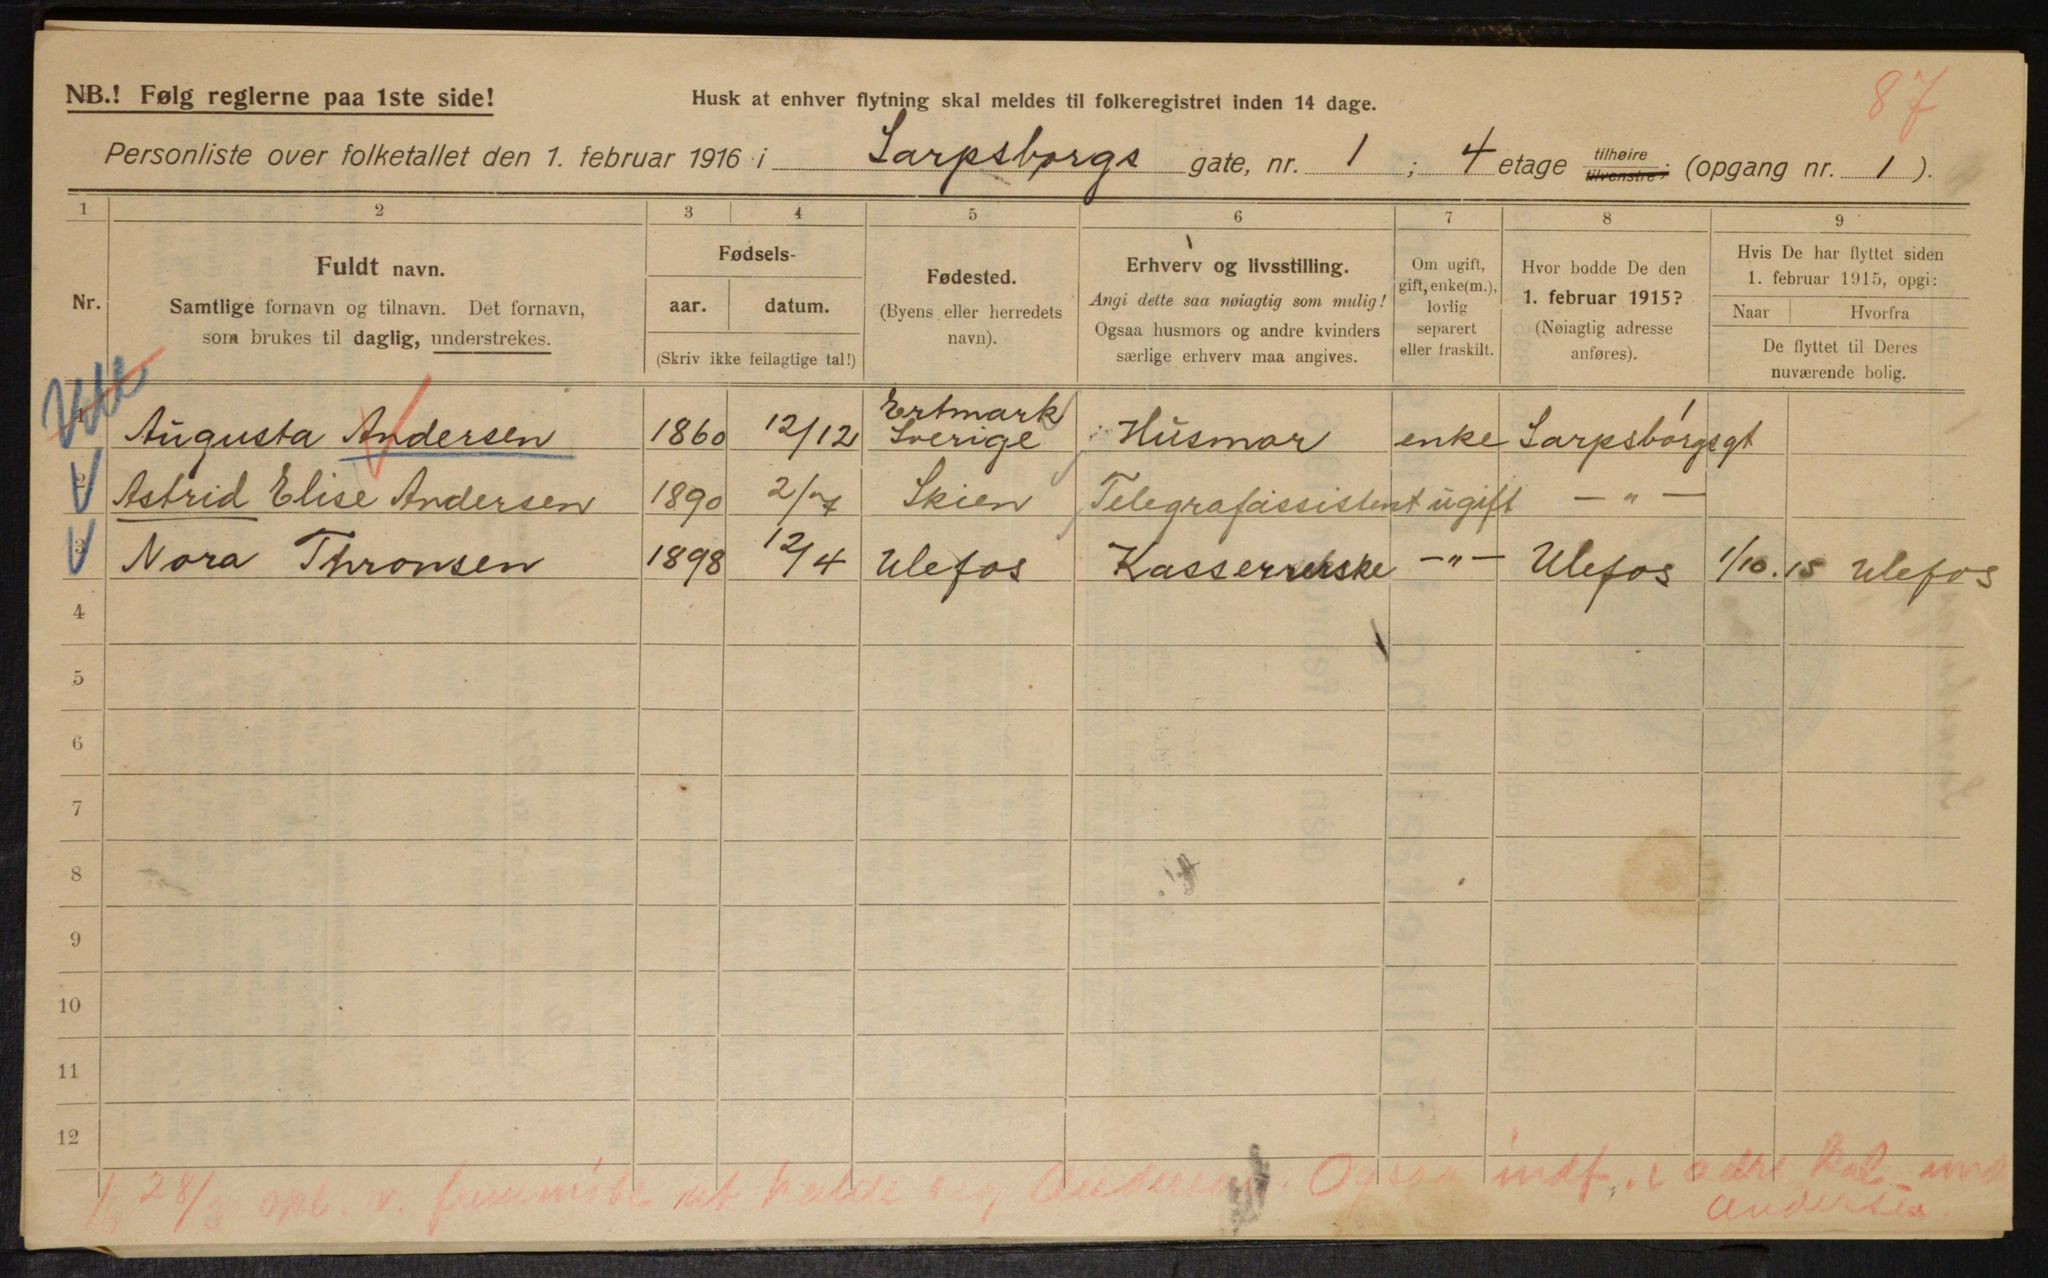 87
NB.! Følg reglerne paa 1ste side!
Husk at enhver flytning skal meldes til folkeregistret inden 14 dage.
Personliste over folketallet den 1. februar 1916 i Sarpsborgs gate, nr. 1 ; 4 etage tilhøire tilvenstre; (opgang nr. 1 ).
1 2 3 4 5 6 7 8 9
Nr.
Fuldt navn.
Samtlige fornavn og tilnavn. Det fornavn,
som brukes til daglig, understrekes.
Fødsels-
aar. datum.
(Skriv ikke feilagtige tal!)
Fødested.
(Byens eller herredets
navn).
Erhverv og livsstilling.
Angi dette saa nøiagtig som mulig!
Ogsaa husmors og andre kvinders
særlige erhverv maa angives.
Om ugift,
gift, enke(m.),
lovlig
separert
eller fraskilt.
Hvor bodde De den
1. februar 1915?
(Nøiagtig adresse
anføres).
Hvis De har flyttet siden
1. februar 1915, opgi:
Naar Hvorfra
De flyttet til Deres
nuværende bolig.
1 Augusta Andersen 1860 12/12 Ertmark Sverige Husmor enke Sarpsborgsgt
2 Astrid Elise Andersen 1890 2/7 Skien Telegrafassistent ugift — " —
3 Nora Thronsen 1898 12/4 Ulefos Kasserske — " — Ulefos 1/10.15 Ulefos
4
5
6
7
8
9
10
11
12
28/3 opl. v. at kalde sig Andersen. Ogsaa indf. i
Andersen.